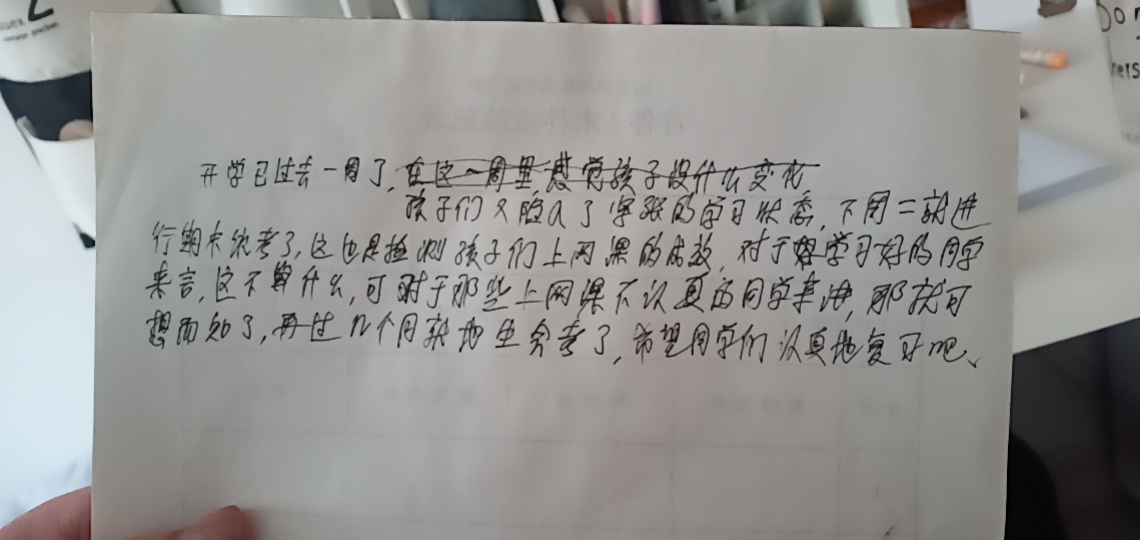 开学已过去一周了,在这一周里,感觉孩子没什么变化
孩子们又陷入了紧张的学习状态,下周二就进
行期末统考了,这也是检测孩子们上网课的成效,对于学习好的同学
来言,这不算什么,可对于那些上网课不认真的同学来讲,那就可
想而知了,再过几个月就地生会考了,希望同学们认真地复习吧、